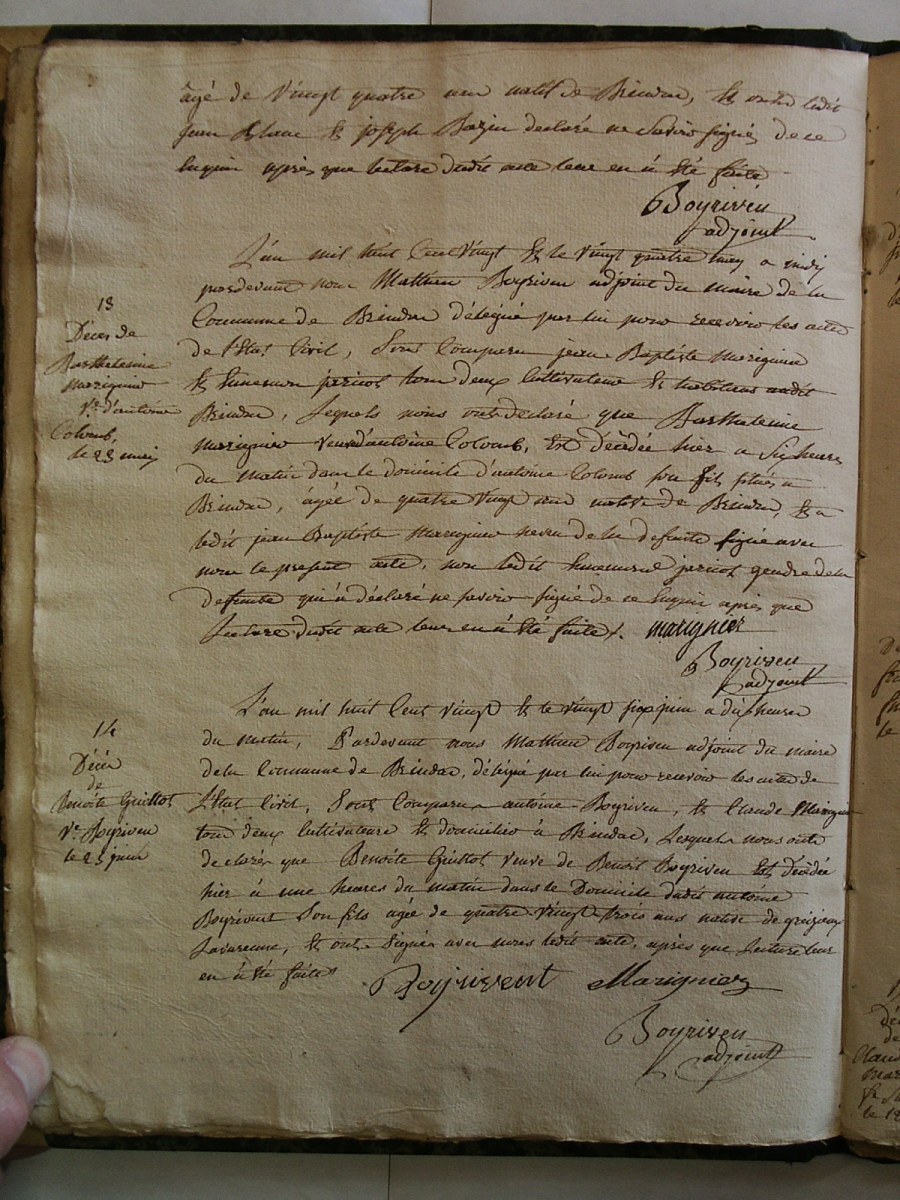 âgé de vingt quatre ans natif de Brindas, Et ont ledit
jean Blanc Et joseph Bazin declaré ne Savoir signer de ce
Enquis après que lecture dudit acte leur en à Eté faite
Boyriven
adjoint
L'an mil huit Cent vingt Et le vingt quatre may a midy
pardevant nous Mathieu Boyriven adjoint du maire de la
Commune de Brindas délégué par lui pour recevoir les actes
de l'Etat Civil, Sont Comparu jean Baptiste Marignier
Et jaricot tous deux Cultivateurs Et habitans audit
Brindas, Lesquels nous ont declaré que Barthelemie
Marignier veuve d'antoine Colomb, Est décédée hier a Six heures
du Matin dans le domicile d'antoine Colomb son fils situé a
Brindas, agée de quatre vingt ans native de Brindas, Et a
ledit jean Baptiste Marignier neveu de la defunte signé avec
nous le present acte, non ledit jaricot gendre de la
defunte qui à déclaré ne savoir signé de ce Enquis après que
Lecture dudit acte leur en à Eté faite. marignier
Boyriven
adjoint
13
Décès de
Barthelemie
Marignier
Ve. d'antoine
Colomb,
le 23 may
L'an mil huit Cent vingt Et le vingt six juin a dix heures
du matin, Pardevant nous Mathieu Boyriven adjoint du maire
de la Commune de Brindas, délégué par lui pour recevoir les actes de
L'Etat Civil, Sont Comparu antoine Boyriven, Et Claude Marignier
tous deux Cultivateurs Et domicilié à Brindas, Lesquels nous ont
declarés que Benoite Guillot veuve de Benoit Boyriven Est décédée
hier à une heures du matin dans le Domicile dudit antoine
Boyrivent Son fils agée de quatre vingt trois ans native de grézieu
Lavarenne, Et ont Signés avec nous ledit acte, après que lecture leur
en à Eté faite
Boyrivent Marignier
Boyriven
adjoint
14
Décès
de
Benoite Guillot
Ve. Boyriven
le 25 juin